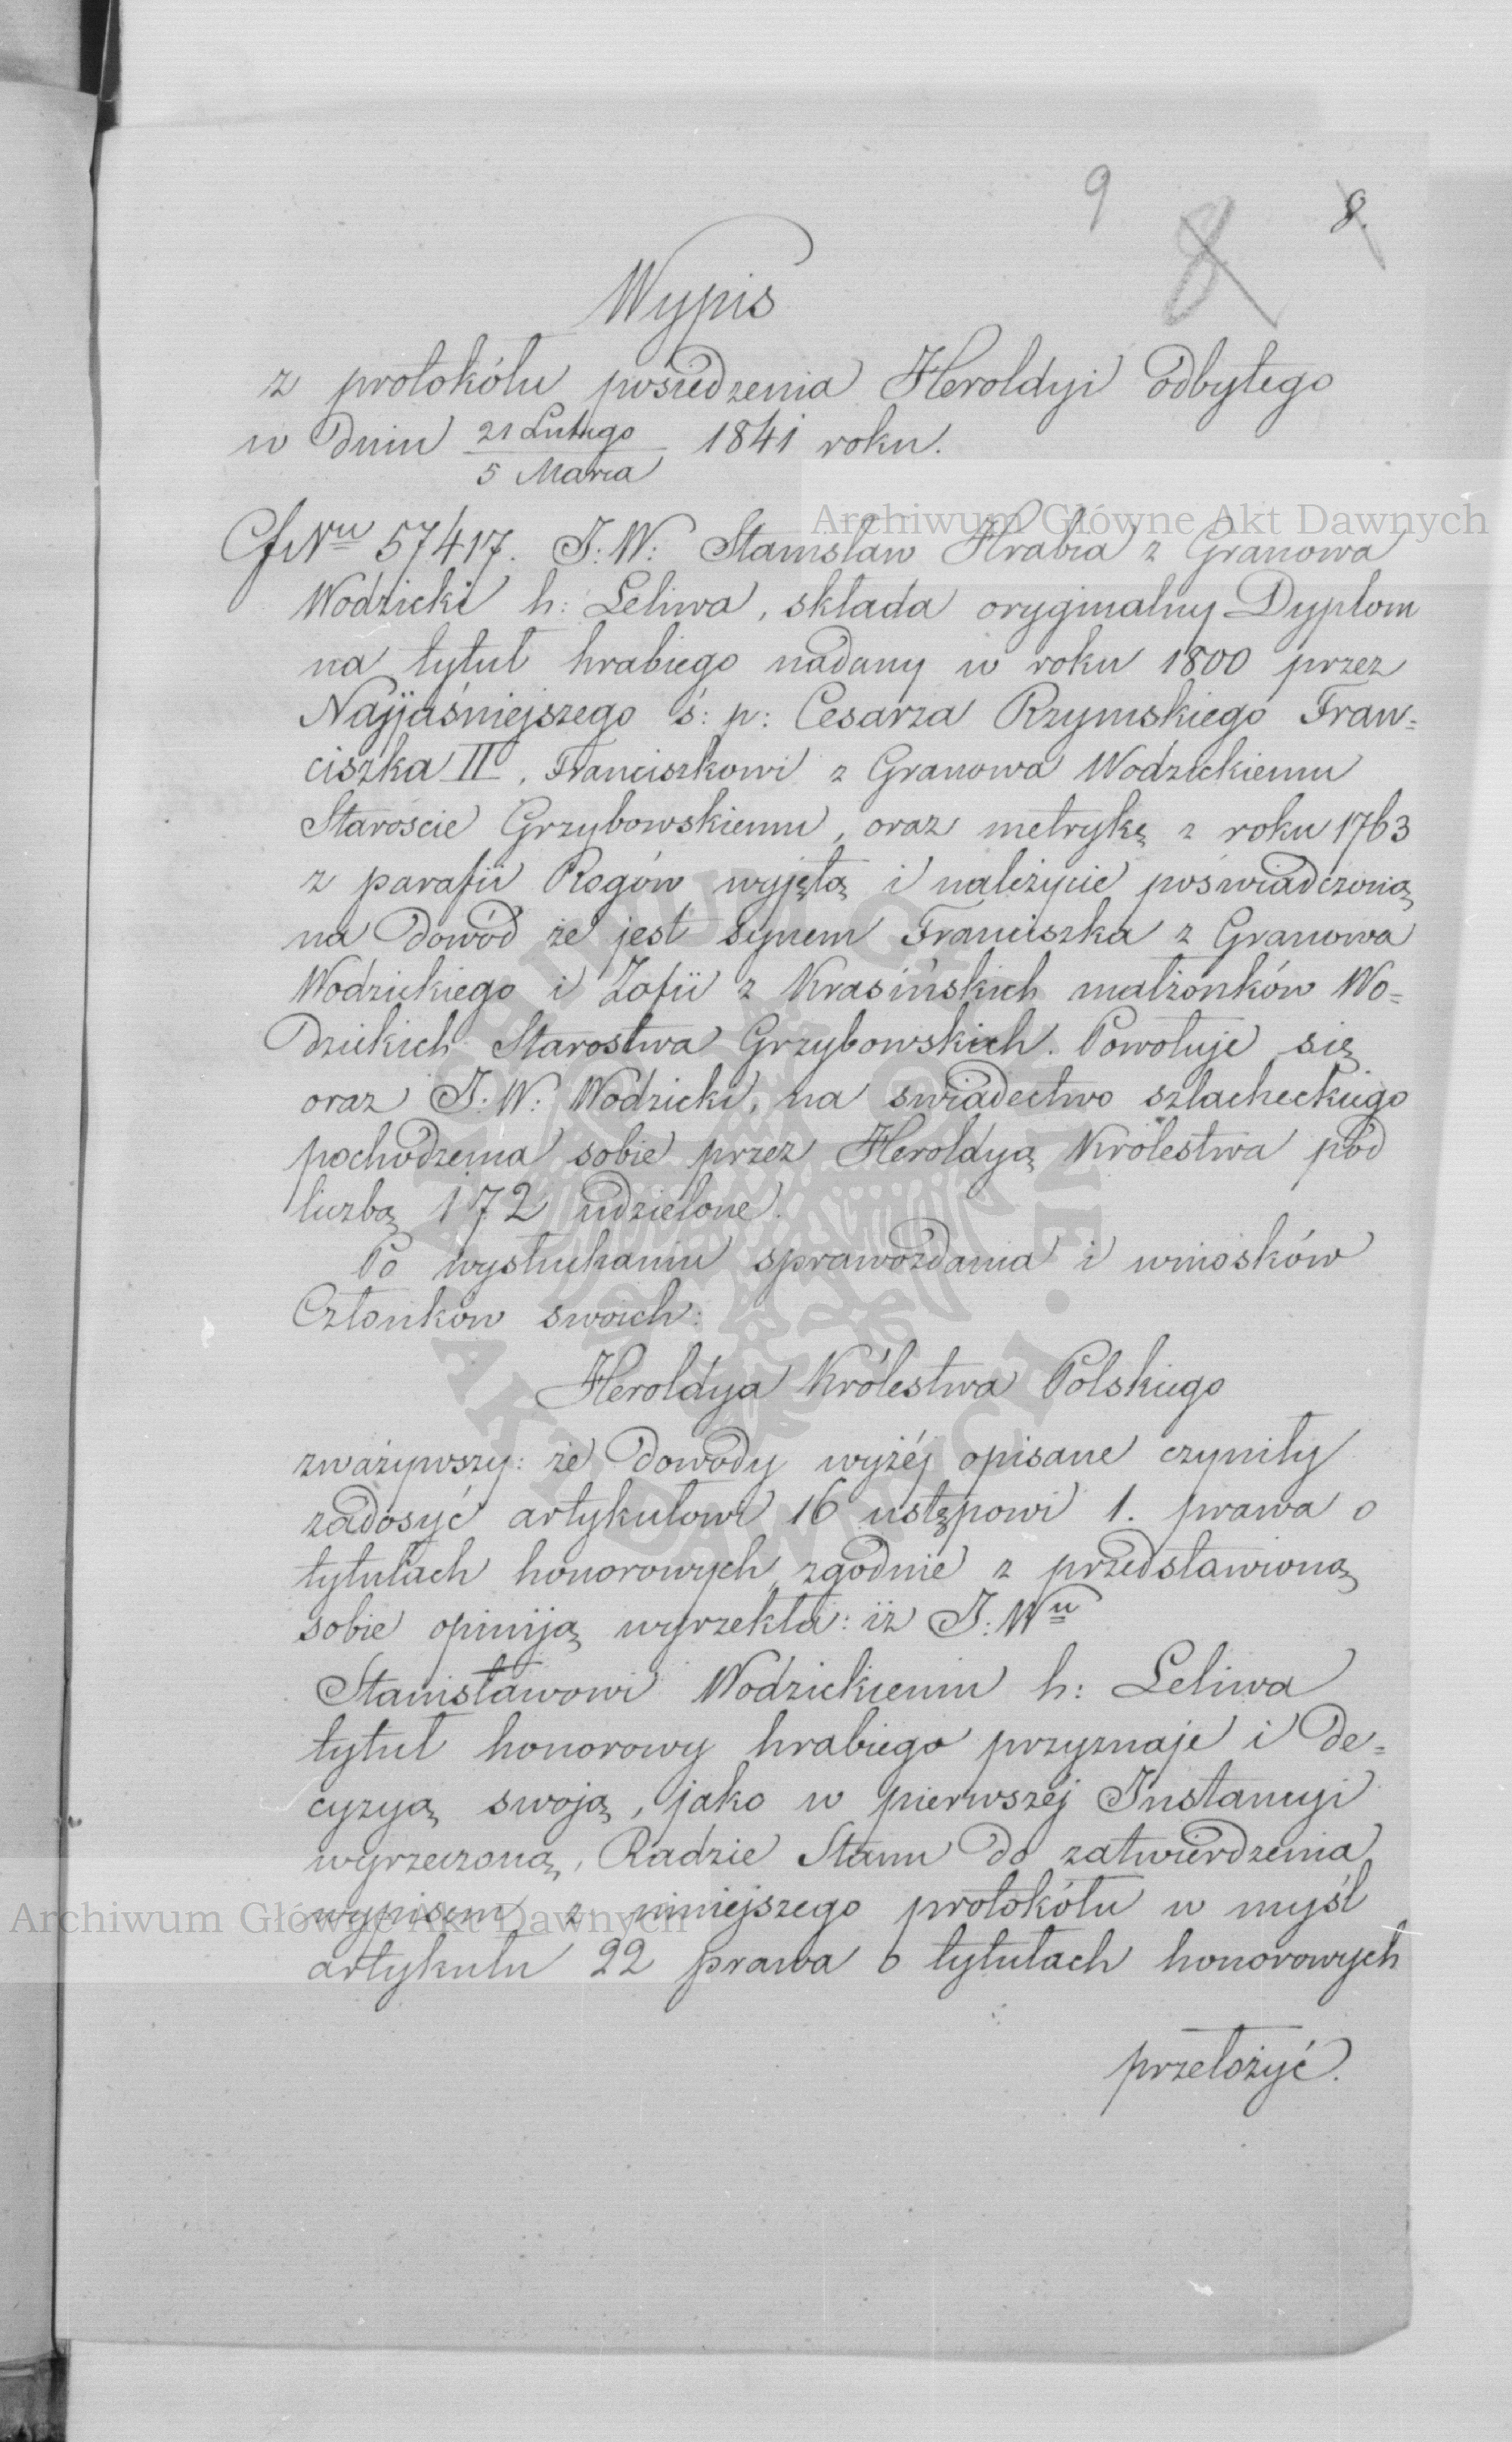 9
8
8.
Wypis
z protokółu posiedzenia Heroldyi odbytego
w dniu 21 Lutego / 5 Marca 1841 roku.
Archiwum Główne Akt Dawnych
Nru 57417. J: W: Stanisław Hrabia z Granowa
Wodzicki h: Leliwa, składa oryginalny Dyplom
na tytuł hrabiego nadany w roku 1800 przez
Najjaśniejszego ś: p: Cesarza Rzymskiego Fran=
ciszka II, Franciszkowi z Granowa Wodzickiemu
Staroście Grzybowskiemu, oraz metrykę z roku 1763
z parafii Rogów wyjętą i należycie poświadczoną
na dowód że jest synem Franciszka z Granowa
Wodzickiego i Zofii z Krasińskich małżonków Wo=
dzickich Starostwa Grzybowskich. Powołuje się
oraz J: W: Wodzicki, na świadectwo szlacheckiego
pochodzenia sobie przez Heroldyą Królestwa pod
liczbą 172 udzielone.
Po wysłuchaniu sprawozdania i wniosków
Członków swoich:
Heroldya Królestwa Polskiego
zważywszy: że dowody wyżéj opisane czyniły
zadosyć artykułowi 16 ustępowi 1. prawa o
tytułach honorowych, zgodnie z przedstawioną
sobie opiniją wyrzekła: iż J: Wu
Stanisławowi Wodzickiemu h: Leliwa
tytuł honorowy hrabiego przyznaje i de=
cyzyą swoją, jako w pierwszéj Instancyi
wyrzeczoną, Radzie Stanu do zatwierdzenia
wypisem z niniejszego protokółu w myśl
Archiwum Główne Akt Dawnych
artykułu 22 prawa o tytułach honorowych
przełożyć.
ARCHIWUM GŁÓWNE · AKT DAWNYCH ·